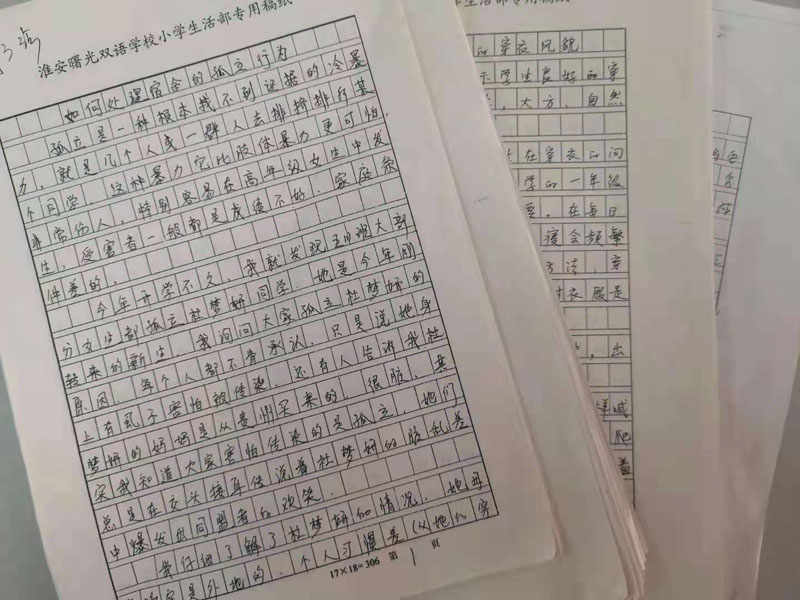 淮安曙光双语学校小学生活部专用稿纸
如何处理宿舍的孤立行为
孤立是一种根本找不到证据的冷暴
力，就是几个人或一群人去排挤排斥某
个同学。这种暴力它比肢体暴力更可怕，
非常伤人，特别容易在高年级女生中发
生，受害者一般都是成绩不好、家庭条
件差的。
今年开学不久，我就发现五、班大部
分女生都孤立杜梦妍同学。她是今年刚
转来的新生。我询问大家孤立杜梦妍的
原因，每个人都不肯承认，只是说她身
上有虱子害怕被传染，还有人告诉我杜
梦妍的妈妈是从贵州买来的，很脏，其
实我知道大家害怕传染的是孤立，她们
总是在交头接耳传说着杜梦妍的脏乱差
中爆发出同盟者的欢笑。
我仔细了解了杜梦妍的情况，她母
是外地的，个人卫生习惯差（从她的穿
17×18=306 第1页
生活部专用稿纸
的穿衣风貌
示学生良好的穿
，大方，自然
生在穿衣的问
学的一年级
。在每日
寝会频繁
方法，穿
衣服是
，出
样喊
爬
着